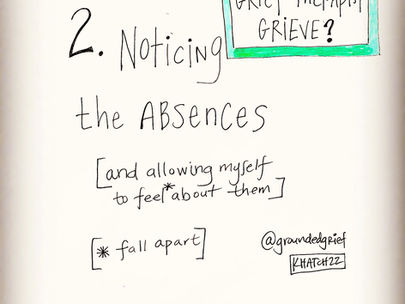 GRIEF THERAPIST
GRIEVE?
2. NOTICING
the ABSENCES
[and allowing myself
to feel* about them]
[* fall apart]
@groundedgrief
KHATCH22